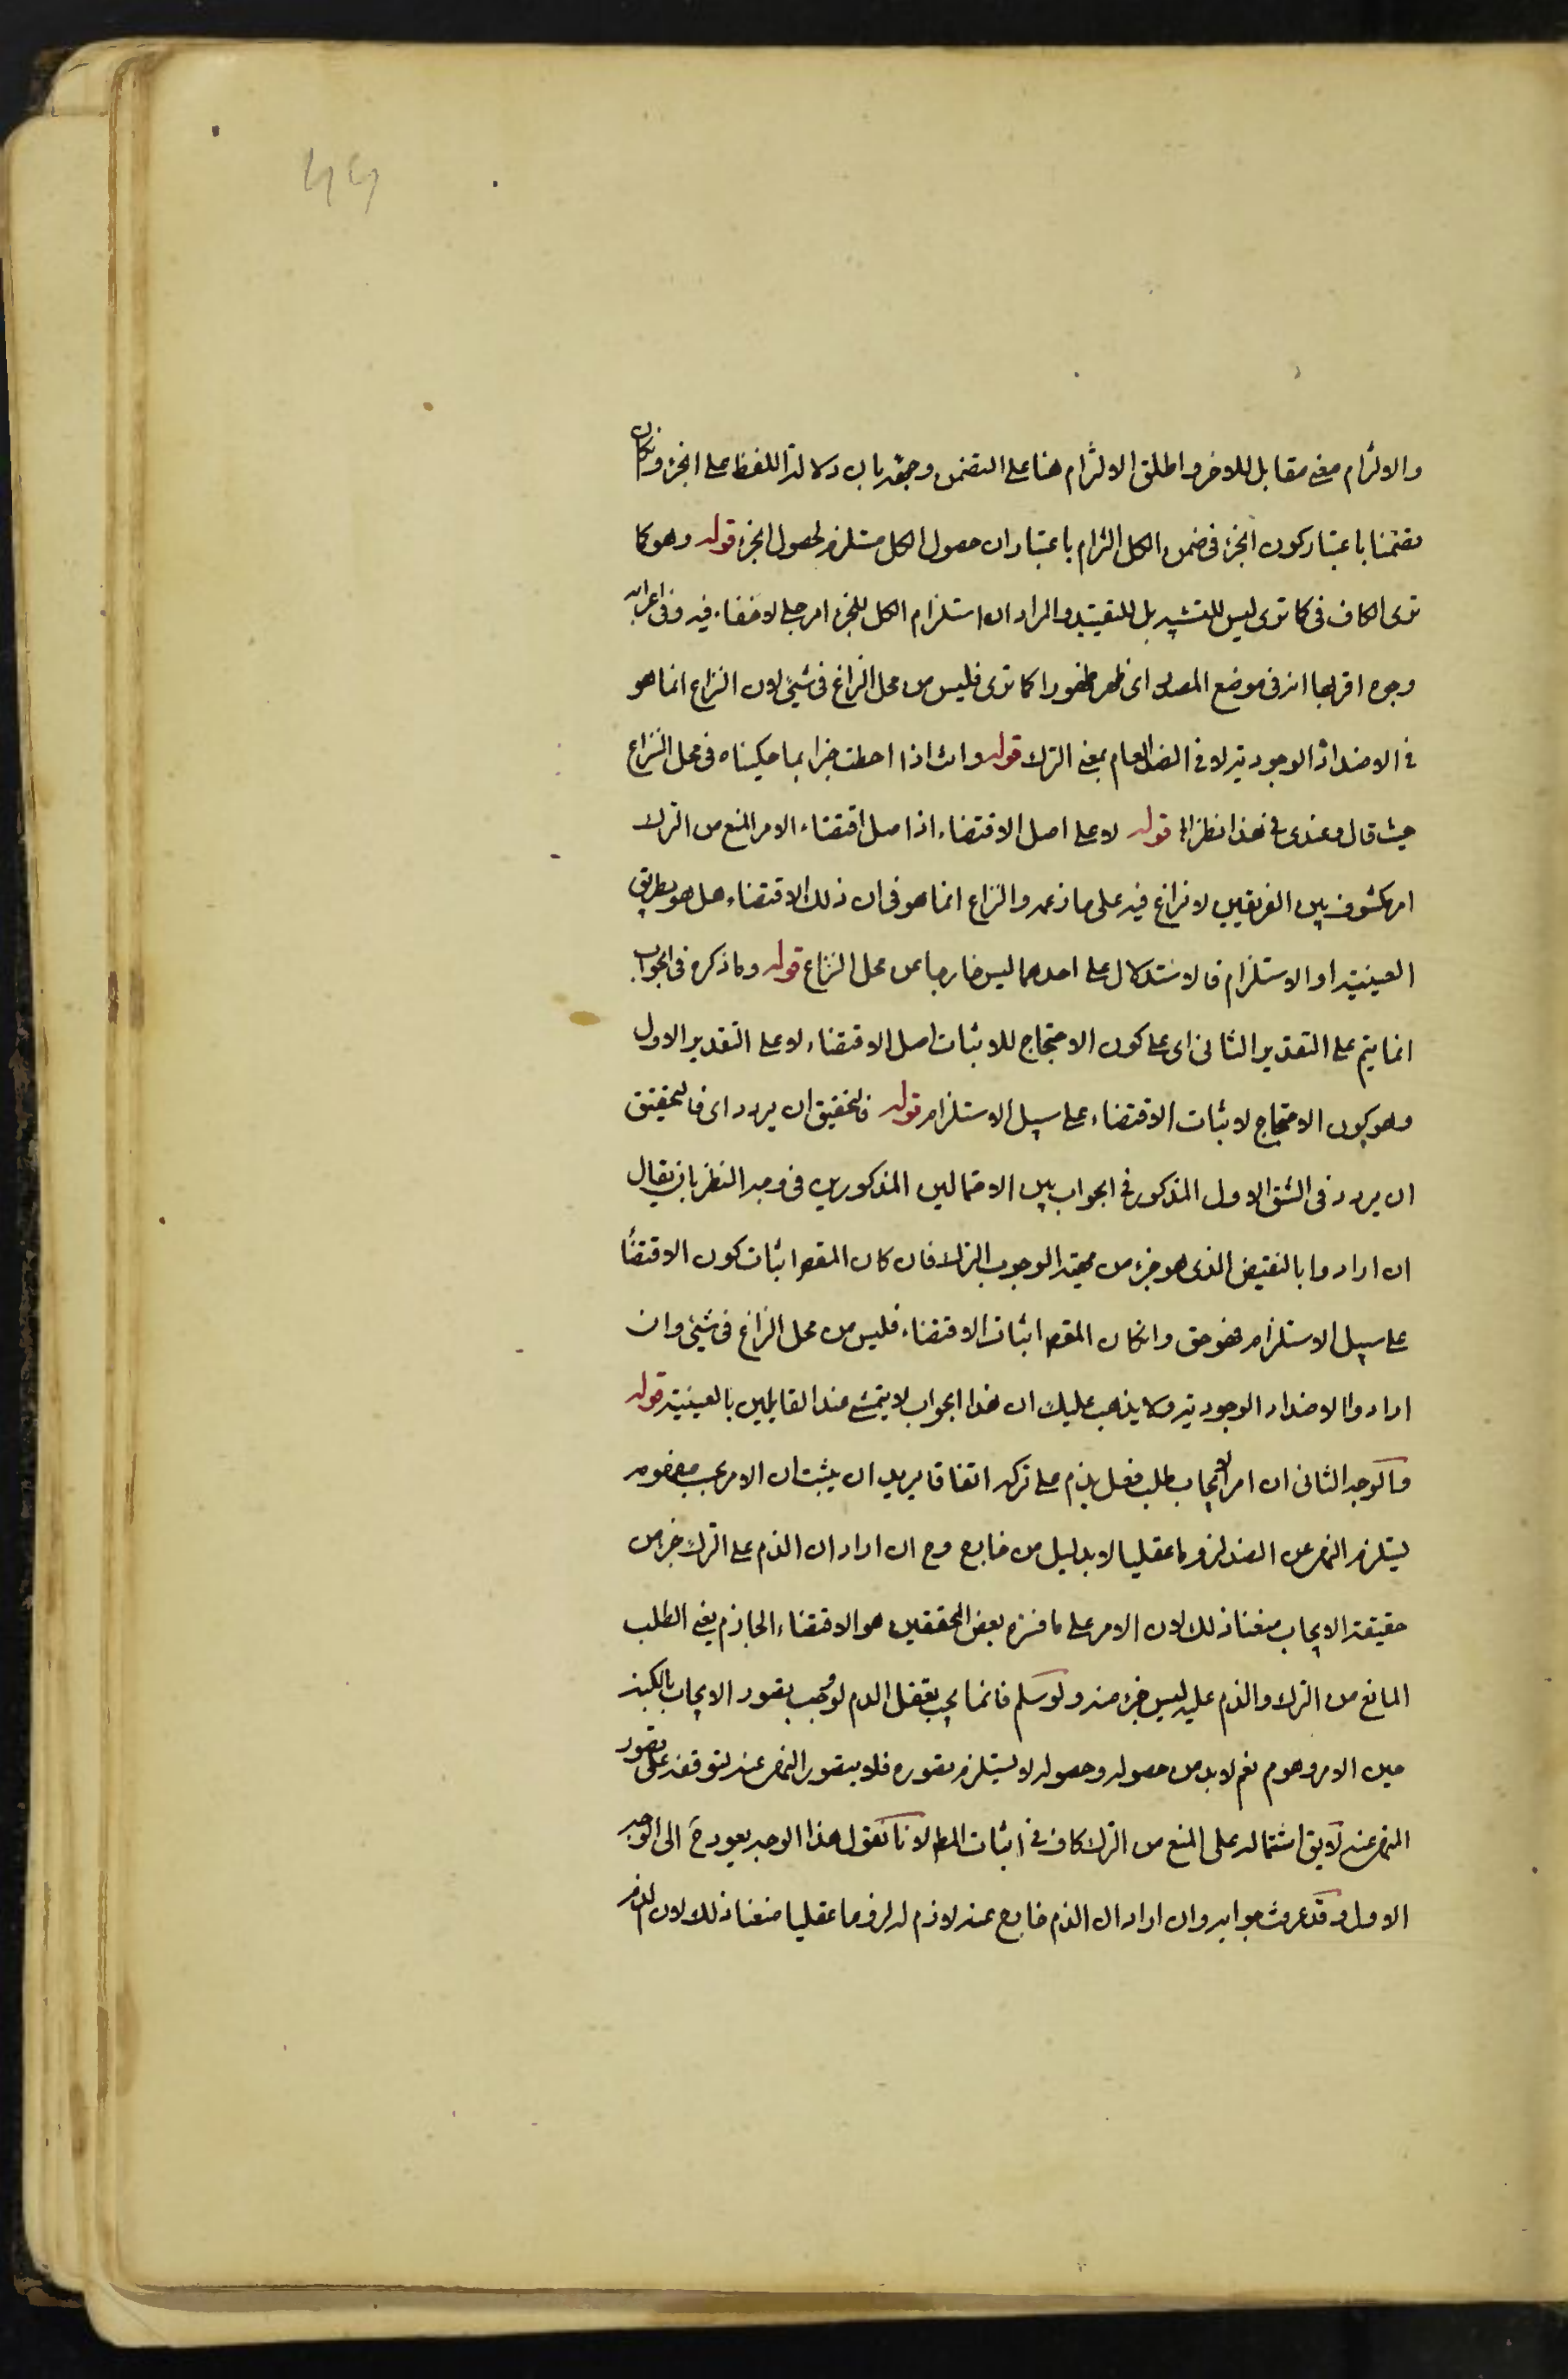 44
والالتزام معنى مقابل للاخر واطلق الالتزام هنا على التضمن وجهه بان دلالة اللفظ على الجزء وان كان
تضمنا باعتبار كون الجزء في ضمن الكل التزام باعتبار ان حصول الكل مستلزم لحصول الجزء قوله وهو كما
ترى الكاف في كما ترى ليس للتشبيه بل للتقييد والمراد ان استلزام الكل للجزء امر جلي لا خفاء فيه وفي اعرابه
وجوه اقربها انه في موضع المصدر اى ظهر ظهورا كما ترى فليس من محل النزاع في شيئ لان النزاع انما هو
في الاضداد الوجودية لا في الضد العام بمعنى الترك قوله وانت اذا احطت خبرا بما حكيناه في محل النزاع
حيث قال وعندى في هذا نظر الى قوله لا على اصل الاقتضاء اذ اصل اقتضاء الامر المنع من الترك
امر مكشوف بين الفريقين لا نزاع فيه على ما زعمه والنزاع انما هو في ان ذلك الاقتضاء هل هو بطريق
العينية او الاستلزام فالاستدلال على احدهما ليس خارجا عن محل النزاع قوله وما ذكره في الجواب
انما يتم على التقدير الثاني اى على كون الاحتجاج للاثبات اصل الاقتضاء لا على التقدير الاول
وهو كون الاحتجاج لاثبات الاقتضاء على سبيل الاستلزام قوله فالتحقيق ان يردد اى فالتحقيق
ان يردد في الشق الاول المذكور في الجواب بين الاحتمالين المذكورين في وجه النظر بان يقال
ان ارادوا بالنقيض الذى هو جزء من مهية الوجوب الترك فان كان المقصو اثبات كون الاقتضاء
على سبيل الاستلزام فهو حق وان كان المقصو اثبات الاقتضاء فليس من محل النزاع في شيئ وان
ارادوا الاضداد الوجودية ولا يذهب عليك ان هذا الجواب لا يتمشى عند القايلين بالعينية قوله
والوجه الثاني ان امر الايجاب طلب فعل يذم على تركه اتفاقا يريد ان يثبت ان الامر بحسب مفهومه
يستلزم النهي عن الضد لزوما عقليا لا بدليل من خارج وح ان اراد ان الذم على الترك جزء من
حقيقة الايجاب منعنا ذلك لان الامر على ما فسره بعض المحققين هو الاقتضاء الجازم يعنى الطلب
المانع من الترك والذم عليه ليس جزء منه ولو سلم فانما يجب تعقل الذم لو وجب تصور الايجاب بالكنه
حين الامر وهو م نعم لا بد من حصوله وحصوله لا يستلزم تصوره فلا يتصور النهي عنه لتوقفه على تصور
النهي عنه لا يق اشتماله على المنع من الترك كاف في اثبات المط لانا نقول هذا الوجه يعود ح الى الوجه
الاول وقد عرفت جوابه وان اراد ان الذم خارج عنه لازم له لزوما عقليا منعنا ذلك لان الذم